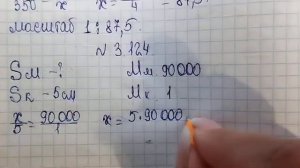 350 - x x/4 - 87,5.
масштаб 1 : 87,5.
N 3.124.
Sм - ? Мм. 90 000
Sк - 5 см Мк. 1
x/5 = 90 000/1 x = 5·90 000